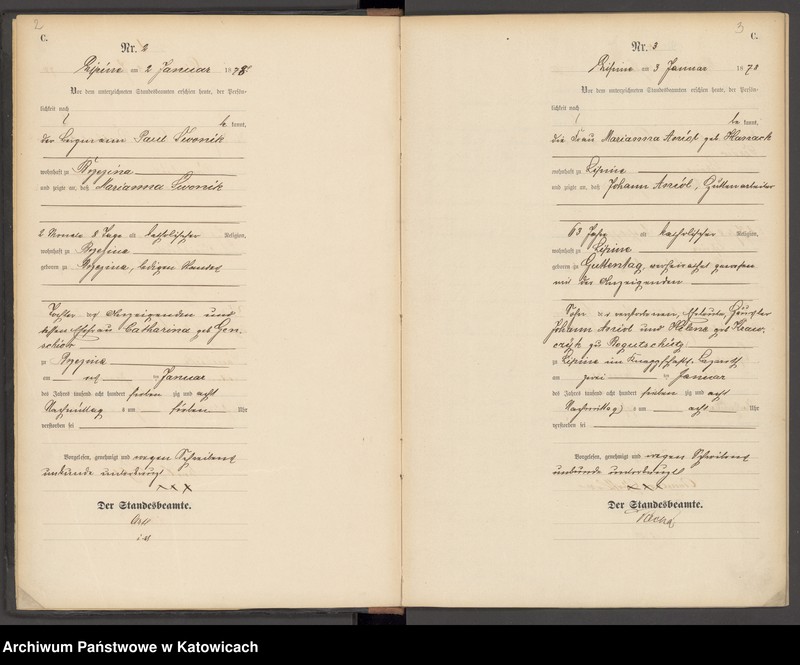 2
C.
Nr. 2
Lipine am 2 Januar 1878
Vor dem unterzeichneten Standesbeamten erschien heute, der Persön-
lichkeit nach
be kannt,
der Bergmann Paul
wohnhaft zu Brzezina
und zeigte an, daß Marianna
2 Monate 8 Tage alt katholischer Religion,
wohnhaft zu Brzezina
geboren zu Brzezina, ledigen Standes
Tochter des Anzeigenden und
dessen Ehefrau Catharina geb
zu Brzezina
am Januar
des Jahres tausend acht hundert sieben zig und acht
Nachmittag s um sieben Uhr
verstorben sei
Vorgelesen, genehmigt und wegen Schreibens
unkunde unterkreuzt
XXX
Der Standesbeamte.
3
C.
Nr. 3
Lipine am 3 Januar 1878
Vor dem unterzeichneten Standesbeamten erschien heute, der Persön-
lichkeit nach
be kannt,
die Frau Marianna Aniól geb Hanack
wohnhaft zu Lipine
und zeigte an, daß Johann Aniól, Hüttenarbeiter
63 Jahr alt katholischer Religion,
wohnhaft zu Lipine
geboren zu Guttentag, verheirathet gewesen
mit der Anzeigenden
Sohn des verstorbenen, Eheleute, Häusler
Johann Aniol und Helene geb
zu Bogutschütz
zu Lipine im Knappschafts-Lazareth
am zwei Januar
des Jahres tausend acht hundert sieben zig und acht
Nachmittag s um acht Uhr
verstorben sei
Vorgelesen, genehmigt und wegen Schreibens
unkunde unterkreuzt
XXX
Der Standesbeamte.
Archiwum Państwowe w Katowicach